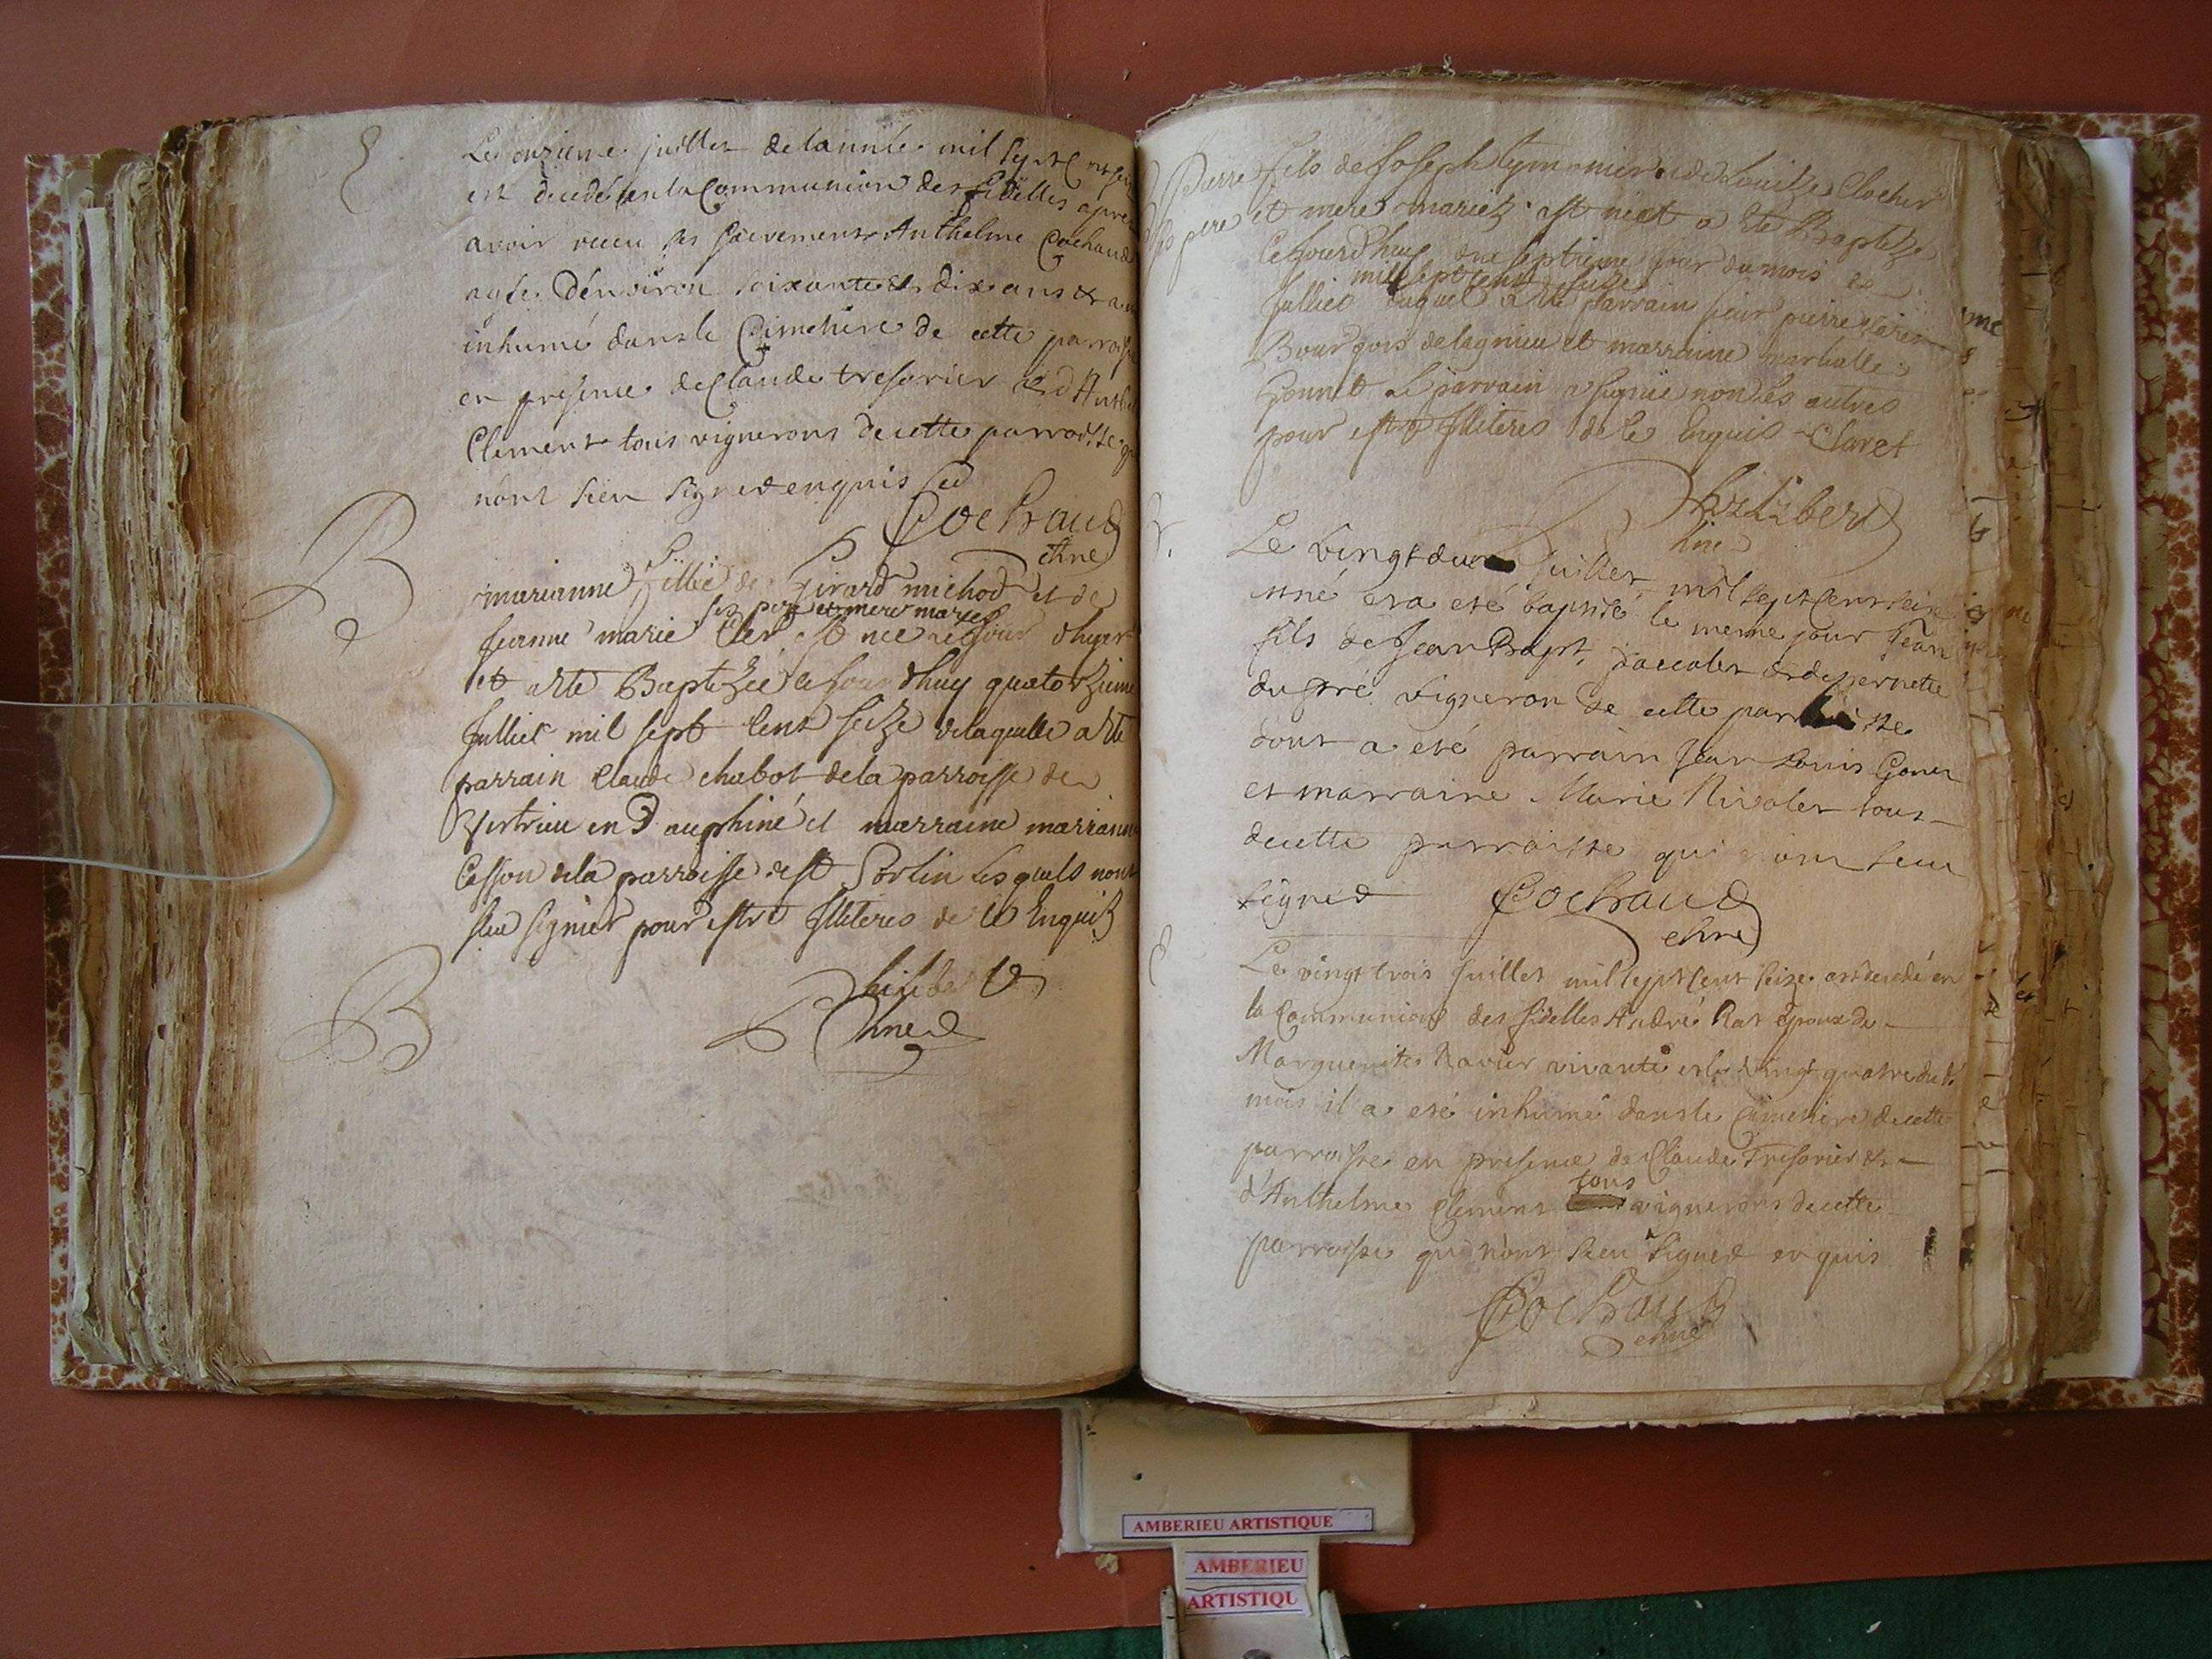 Le onzieme juillet de lannée mil sept cent
est decedé en la Communion des fidelles apres
avoir receu ses sacrements Anthelme Cochaud
agée d'environ soixante et dix ans & a
inhumé dans le Cimetiere de cette parroisse
en presence de Claude tresorier et d'Anth
Clement tous vignerons de cette parroisse
n'ont sceu signer enquis
Cochaud
B
marianne fillie de Girard michod et de
ses pere et mere mariés
Jeanne marie Cler est nee
et a ete Baptizée ce jourdhuy quatorzieme
Julliet mil sept cent seize de laquelle a ete
parrain Claude chabot de la parroisse de
Vertrieu en Dauphiné et marraine marianne
Casson de la parroisse de st Sorlin lesquels nont
sceu signer pour estre Illiteres de ce Enquis
Philibert
B
Pierre fils de Joseph et de Clocher
ses pere et mere mariez est né et a ete Baptize
Cejourdhuy dix septieme jour du mois de
mil sept cent seize
Julliet duquel a ete parrain sieur pierre
Bourgois de lagnieu et marraine
le parrain a signé non les autres
pour estre Illiteres de ce Enquis Claret
Philibert
Le vingt deux Juillet mil sept cent seize
est né et a eté baptisé le meme jour Jean
fils de Jean Bapt. et de pernette
vigneron de cette parroisse
dont a eté parrain Jean Louis
et marraine Marie Nivolet tous
de cette parroisse qui n'ont sceu
signer Cochaud
Le vingt trois Juillet mil sept cent seize est decedé en
la Communion des fidelles André Rat epoux de
Marguerite Ravier vivante et le vingt quatre dudt
mois il a eté inhumé dans le Cimetiere de cette
parroisse en presence de Claude Tresorier &
tous
d'Anthelme Clement vignerons de cette
parroisse qui n'ont sceu signer enquis
Cochaud
AMBERIEU ARTISTIQUE
AMBERIEU
ARTISTIQU